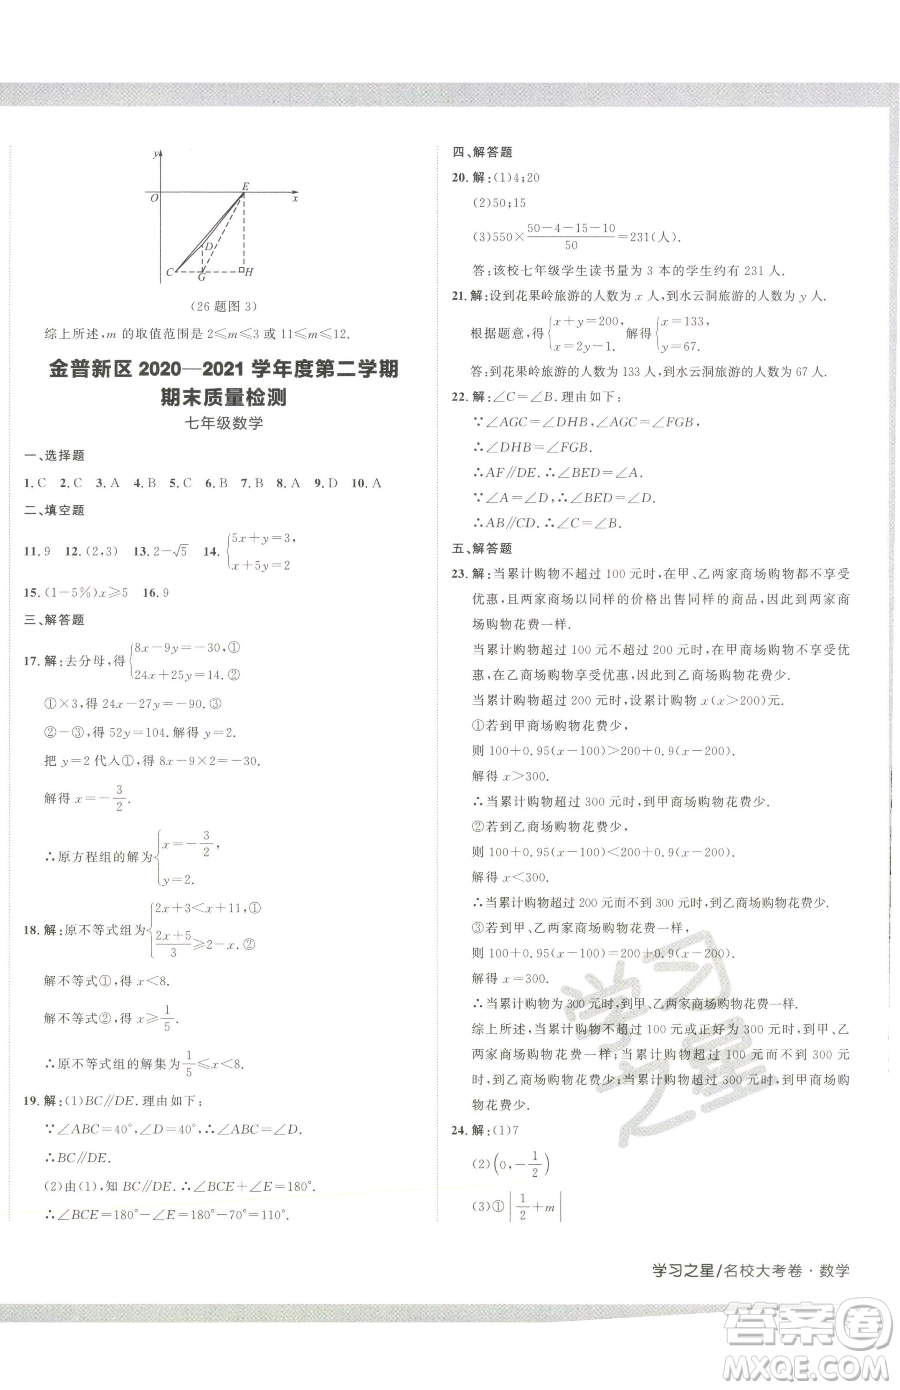 y
O
E
x
D
C
G
H
(26 题图 3)
综上所述,m 的取值范围是 2≤m≤3 或 11≤m≤12.
金普新区 2020—2021 学年度第二学期
期末质量检测
七年级数学
一、选择题
1.C 2.C 3.A 4.B 5.C 6.B 7.B 8.A 9.D 10.A
二、填空题
11.9 12.(2,3) 13.2-√5 14.{5x+y=3, x+5y=2
15.(1-5%)x≥5 16.9
三、解答题
17.解:去分母,得{8x-9y=-30,① 24x+25y=14.②
①×3,得 24x-27y=-90.③
②-③,得 52y=104.解得 y=2.
把 y=2 代入①,得 8x-9×2=-30.
解得 x=-3/2.
∴原方程组的解为{x=-3/2, y=2.
18.解:原不等式组为{2x+3<x+11,① (2x+5)/3≥2-x.②
解不等式①,得 x<8.
解不等式②,得 x≥1/5.
∴原不等式组的解集为1/5≤x<8.
19.解:(1)BC∥DE.理由如下:
∵∠ABC=40°,∠D=40°,∴∠ABC=∠D.
∴BC∥DE.
(2)由(1),知 BC∥DE,∴∠BCE+∠E=180°.
∴∠BCE=180°-∠E=180°-70°=110°.
四、解答题
20.解:(1)4;20
(2)50;15
(3)550×(50-4-15-10)/50=231(人).
答:该校七年级学生读书量为 3 本的学生约有 231 人.
21.解:设到花果岭旅游的人数为 x 人,到水云洞旅游的人数为 y 人.
根据题意,得{x+y=200, x=2y-1. 解得{x=133, y=67.
答:到花果岭旅游的人数为 133 人,到水云洞旅游的人数为 67 人.
22.解:∠C=∠B.理由如下:
∵∠AGC=∠DHB,∠AGC=∠FGB,
∴∠DHB=∠FGB.
∴AF∥DE.∴∠BED=∠A.
∵∠A=∠D,∴∠BED=∠D.
∴AB∥CD.∴∠C=∠B.
五、解答题
23.解:当累计购物不超过 100 元时,在甲、乙两家商场购物都不享受
优惠,且两家商场以同样的价格出售同样的商品,因此到两家商
场购物花费一样.
当累计购物超过 100 元而不超过 200 元时,在甲商场购物不享
受优惠,在乙商场购物享受优惠,因此到乙商场购物花费少.
当累计购物超过 200 元时,设累计购物 x(x>200)元.
①若到甲商场购物花费少,
则 100+0.95(x-100)>200+0.9(x-200).
解得 x>300.
∴当累计购物超过 300 元时,到甲商场购物花费少.
②若到乙商场购物花费少,
则 100+0.95(x-100)<200+0.9(x-200).
解得 x<300.
∴当累计购物超过 200 元而不到 300 元时,到乙商场购物花费少.
③若到甲、乙两家商场购物花费一样,
则 100+0.95(x-100)=200+0.9(x-200).
解得 x=300.
∴当累计购物为 300 元时,到甲、乙两家商场购物花费一样.
综上所述,当累计购物不超过 100 元或正好为 300 元时,到甲、乙
两家商场购物花费一样;当累计购物超过 100 元而不到 300 元
时,到乙商场购物花费少;当累计购物超过 300 元时,到甲商场购
物花费少.
24.解:(1)7
(2)(0,-1/2)
(3)①|1/2+m|
学习之星
学习之星/名校大考卷·数学
答案圈
MXQE.COM